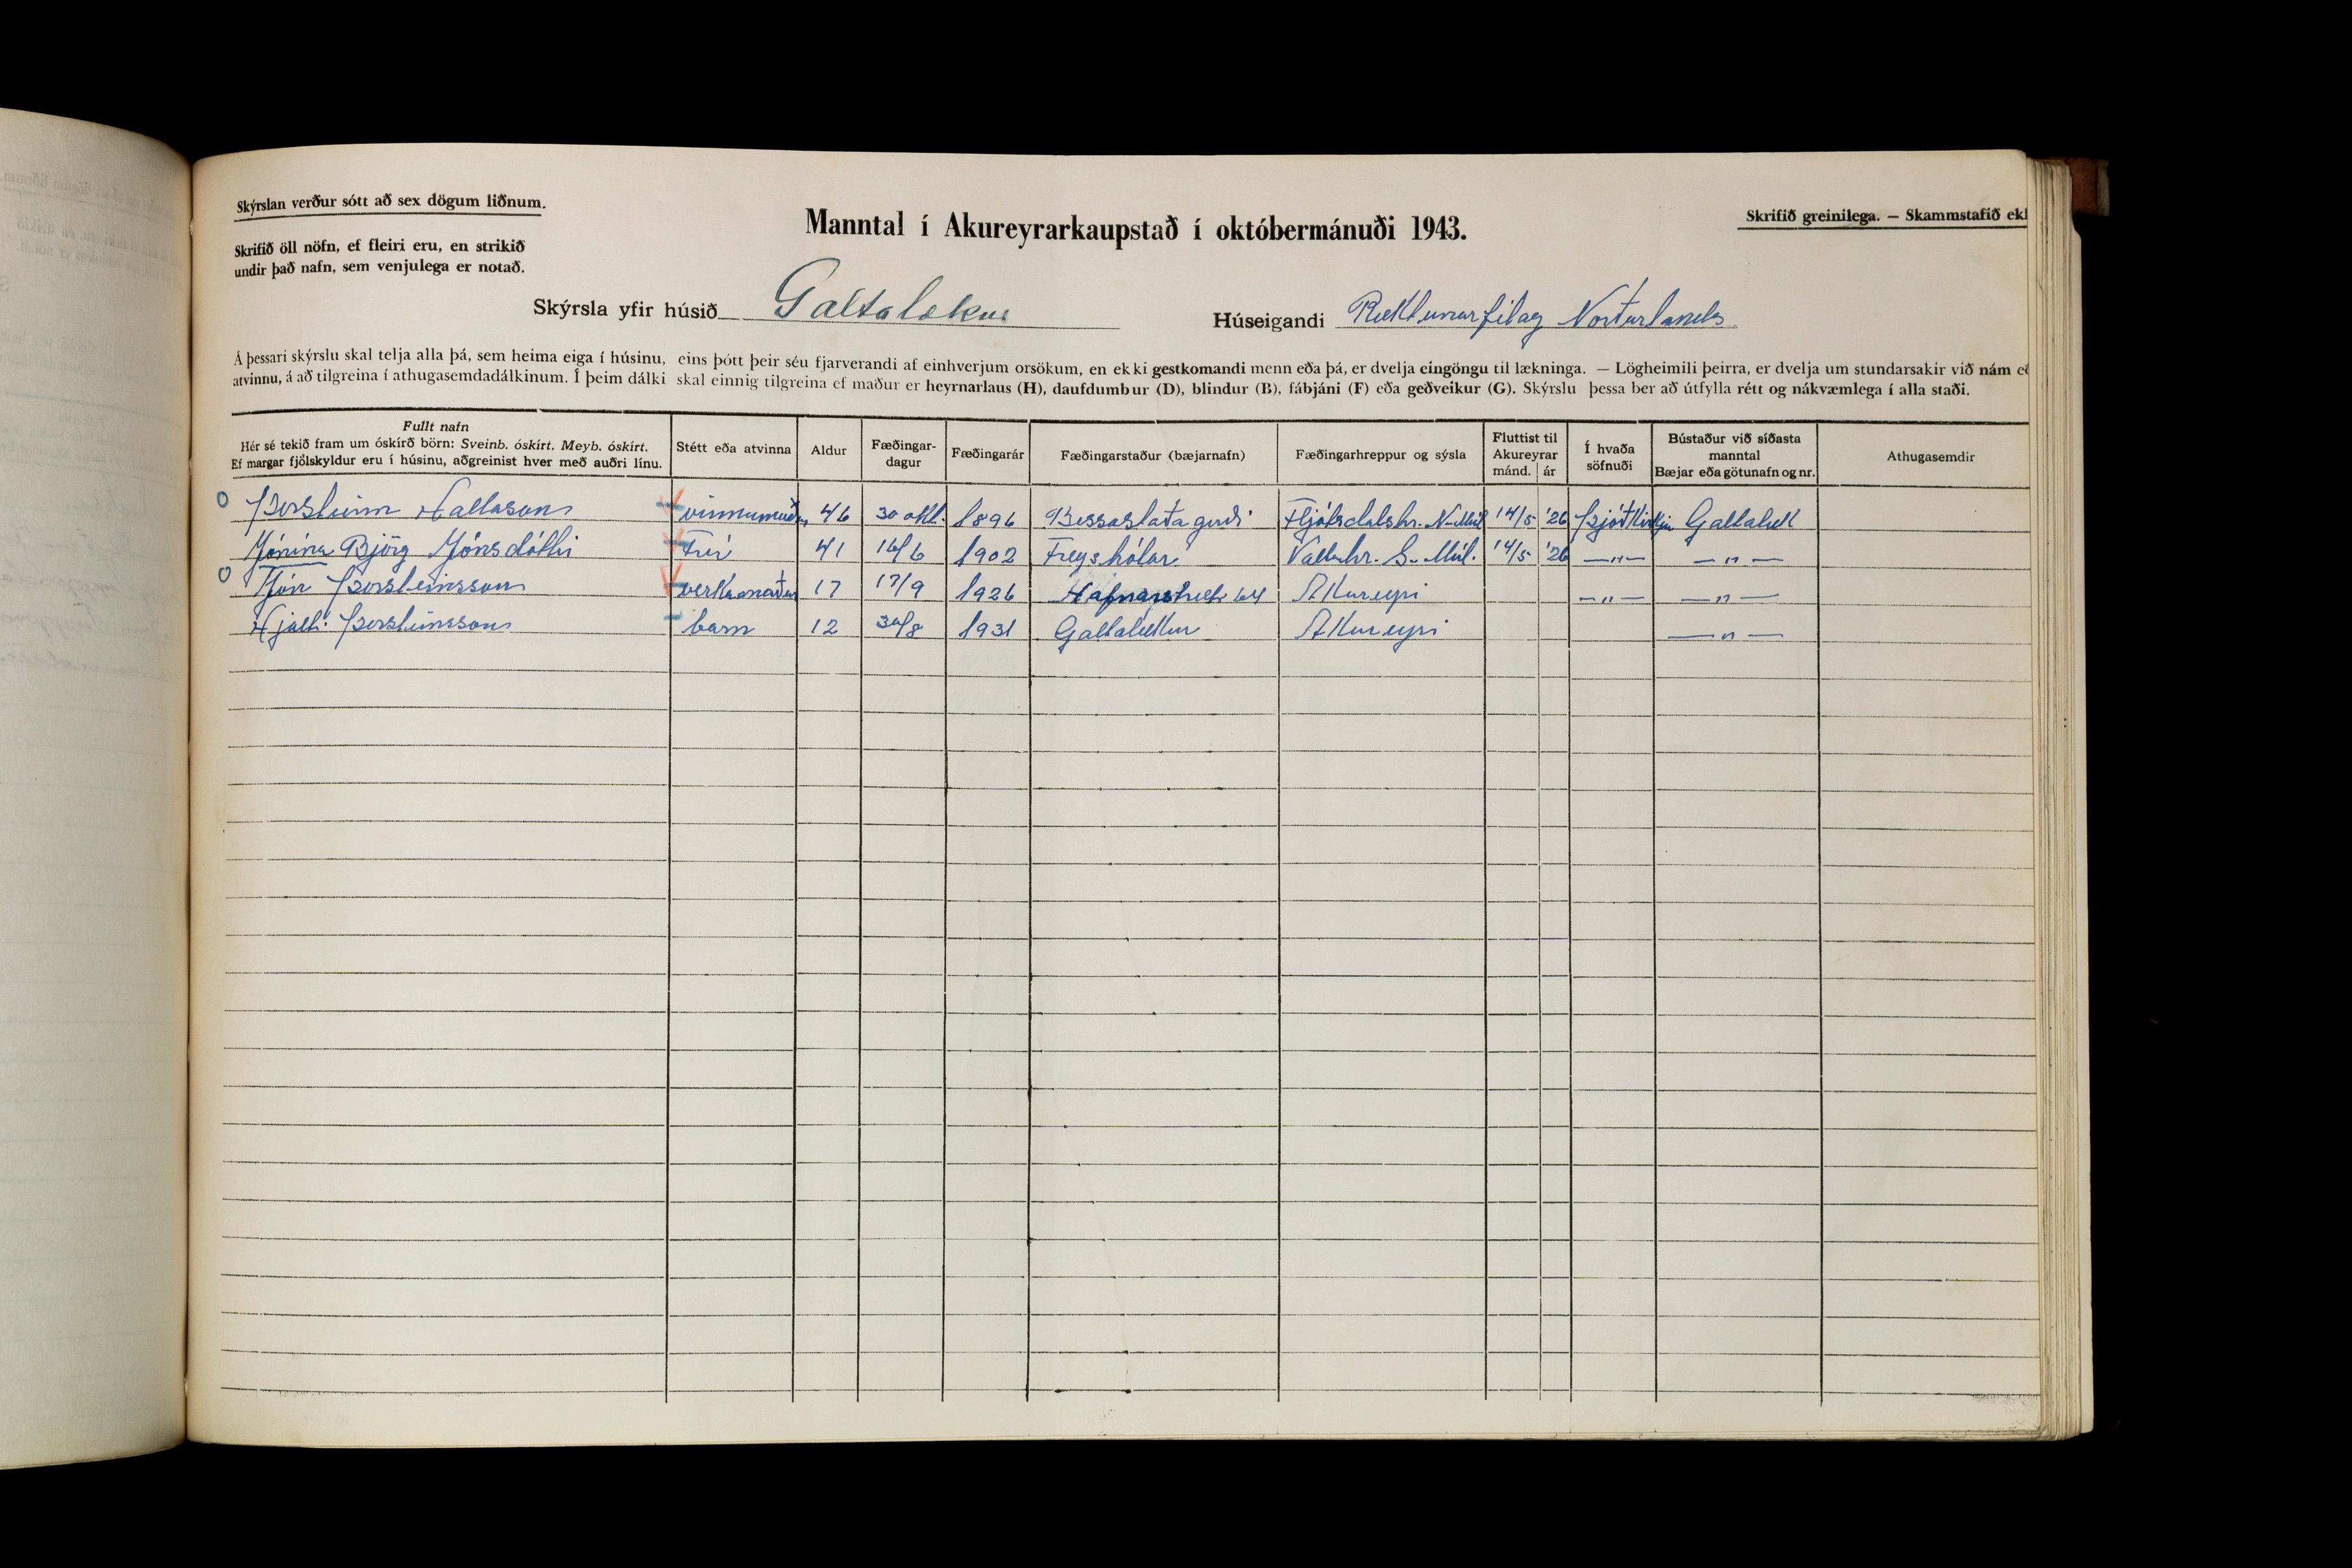 Skýrslan verður sótt að sex dögum liðnum.
Skrifið öll nöfn, ef fleiri eru, en strikið
undir það nafn, sem venjulega er notað.
Manntal í Akureyrarkaupstað í októbermánuði 1943.
Skrifið greinilega. — Skammstafið ekk
Skýrsla yfir húsið Galtalækur
Húseigandi Ræktunarfélag Norðurlands
Á þessari skýrslu skal telja alla þá, sem heima eiga í húsinu, eins þótt þeir séu fjarverandi af einhverjum orsökum, en ekki gestkomandi menn eða þá, er dvelja eingöngu til lækninga. — Lögheimili þeirra, er dvelja um stundarsakir við nám eð
atvinnu, á að tilgreina í athugasemdadálkinum. Í þeim dálki skal einnig tilgreina ef maður er heyrnarlaus (H), daufdumbur (D), blindur (B), fábjáni (F) eða geðveikur (G). Skýrslu þessa ber að útfylla rétt og nákvæmlega í alla staði.
Fullt nafn
Hér sé tekið fram um óskírð börn: Sveinb. óskírt. Meyb. óskírt.
Ef margar fjölskyldur eru í húsinu, aðgreinist hver með auðri línu.
Stétt eða atvinna
Aldur
Fæðingar-
dagur
Fæðingarár
Fæðingarstaður (bæjarnafn)
Fæðingarhreppur og sýsla
Fluttist til
Akureyrar
mánd. ár
Í hvaða
söfnuði
Bústaður við síðasta
manntal
Bæjar eða götunafn og nr.
Athugasemdir
o Þorsteinn Hallason vinnumaður 46 30 okt. 1896 Bessastaðagerði Fljótsdalshr. N-Múl 14/5 '26 Þjóðkirkju Galtalæk
Jónína Björg Jónsdóttir Frú 41 16/6 1902 Freyshólar Vallahr. S-Múl. 14/5 '26 —"— —"—
o Jón Þorsteinsson verkamaður 17 17/9 1926 Hafnarstræti 64 Akureyri —"— —"—
Hjalti Þorsteinsson barn 12 30/8 1931 Galtalækur Akureyri —"—